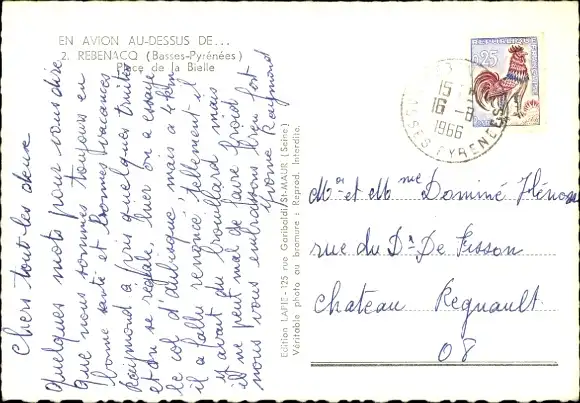 EN AVION AU-DESSUS DE...
2. REBENACQ (Basses-Pyrénées)
Place de la Bielle
Chers tout les deux
quelques mots pour vous dire
que nous sommes toujours en
bonne santé et bonnes vacances
Raymond a pris quelques truites
et on se régale. hier on a essayé
le col d'aubisque, mais a 4 km
il a fallu renoncé, tellement il
y avait du brouillard mais
il ne peut mal de faire froid
nous vous embrassons bien fort
Yvonne Raymond
Edition LAPIE - 125 rue Garibaldi/St-MAUR (Seine)
Véritable photo au bromure : Reprod. Interdite.
0,25
15
16 -8
1966
BSES PYRENEES
Mr et Mme Dominé
rue du Dr De Fisson
Chateau Regnault
08